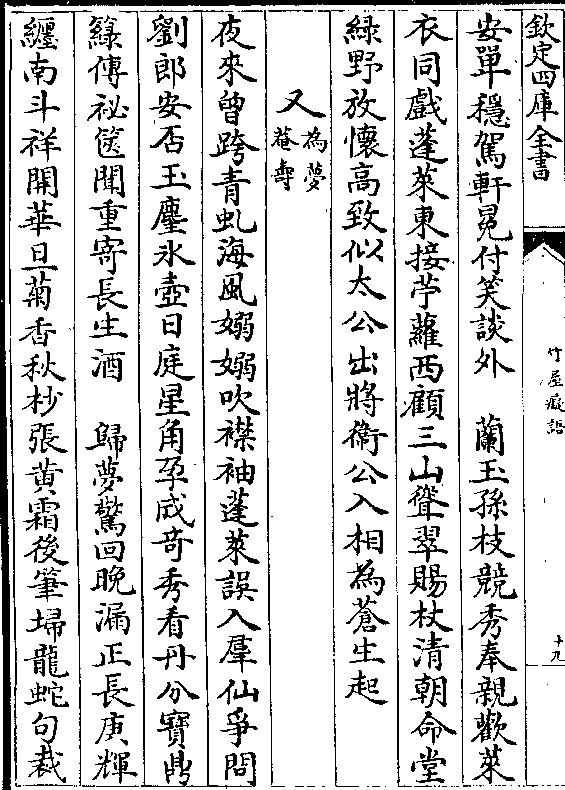 欽定四庫全書
竹屋癡語
十九
安單穩駕軒冕付笑談外　蘭玉孫枝競秀奉親歡萊
衣同戲蓬萊東接苧蘿西顧三山聳翠賜杖清朝命堂
綠野放懷高致似太公出將衛公入相為蒼生起
又為夢菴壽
夜來曾跨青虬海風嫋嫋吹襟袖蓬萊誤入羣仙爭問
劉郎安否玉麈氷壺日庭星角孕成竒秀看丹分寶鼎
籙傳祕篋聞重寄長生酒　歸夢驚回晚漏正長庚輝
纒南斗祥開華旦菊香秋杪張黄霜後筆埽龍蛇句裁